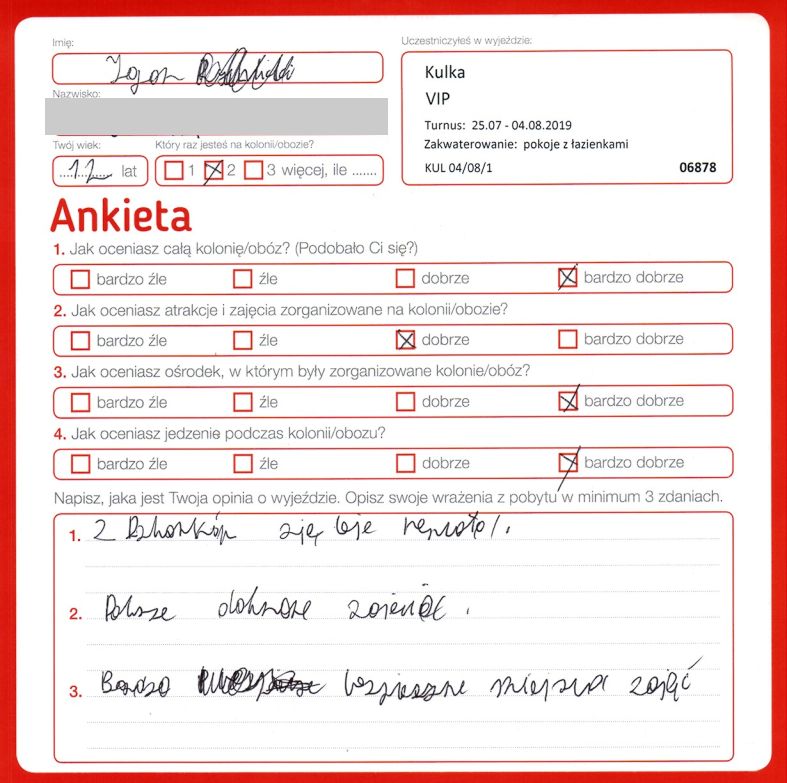 Imię:
Uczestniczyłeś w wyjeździe:
Kulka
VIP
Nazwisko:
Turnus: 25.07 - 04.08.2019
Zakwaterowanie: pokoje z łazienkami
KUL 04/08/1 06878
Twój wiek: Który raz jesteś na kolonii/obozie?
12 lat 1 2 3 więcej, ile .......
Ankieta
1. Jak oceniasz całą kolonię/obóz? (Podobało Ci się?)
bardzo źle źle dobrze bardzo dobrze
2. Jak oceniasz atrakcje i zajęcia zorganizowane na kolonii/obozie?
bardzo źle źle dobrze bardzo dobrze
3. Jak oceniasz ośrodek, w którym były zorganizowane kolonie/obóz?
bardzo źle źle dobrze bardzo dobrze
4. Jak oceniasz jedzenie podczas kolonii/obozu?
bardzo źle źle dobrze bardzo dobrze
Napisz, jaka jest Twoja opinia o wyjeździe. Opisz swoje wrażenia z pobytu w minimum 3 zdaniach.
1. 2
2.
3. Bardzo miejsca zajęć